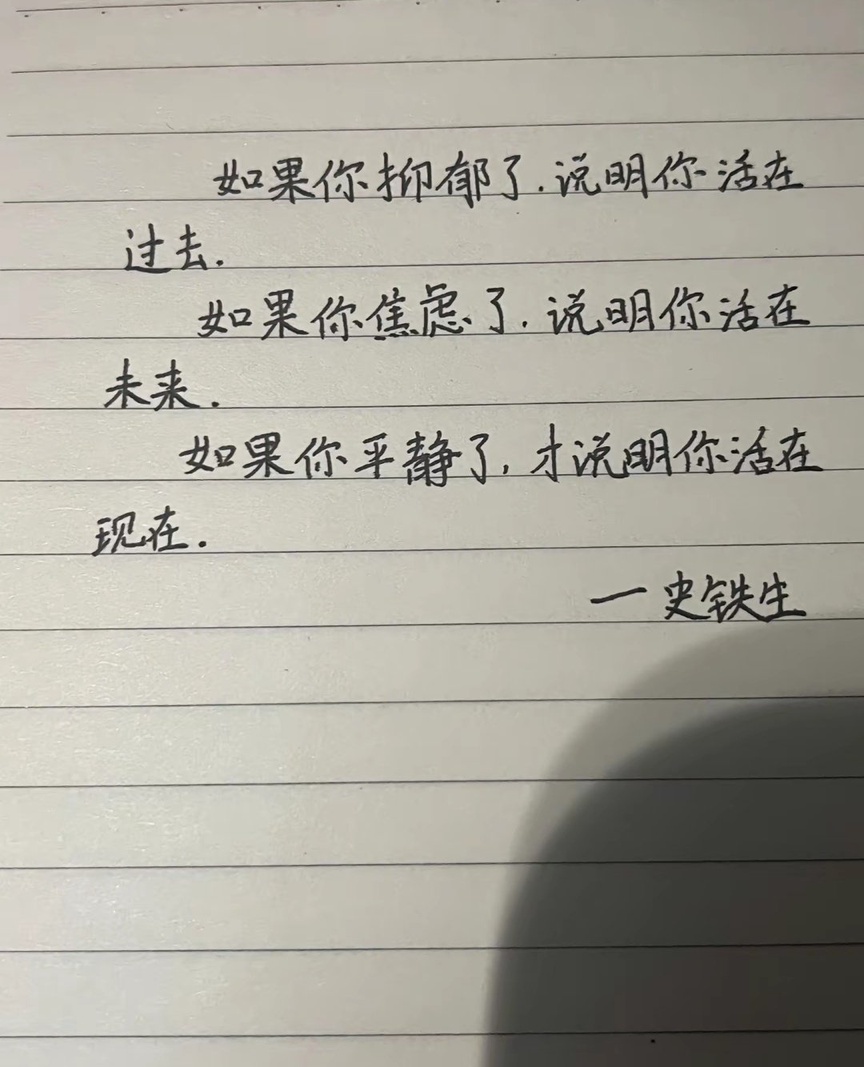 如果你抑郁了.说明你活在
过去.
如果你焦虑了.说明你活在
未来.
如果你平静了,才说明你活在
现在.
一史铁生